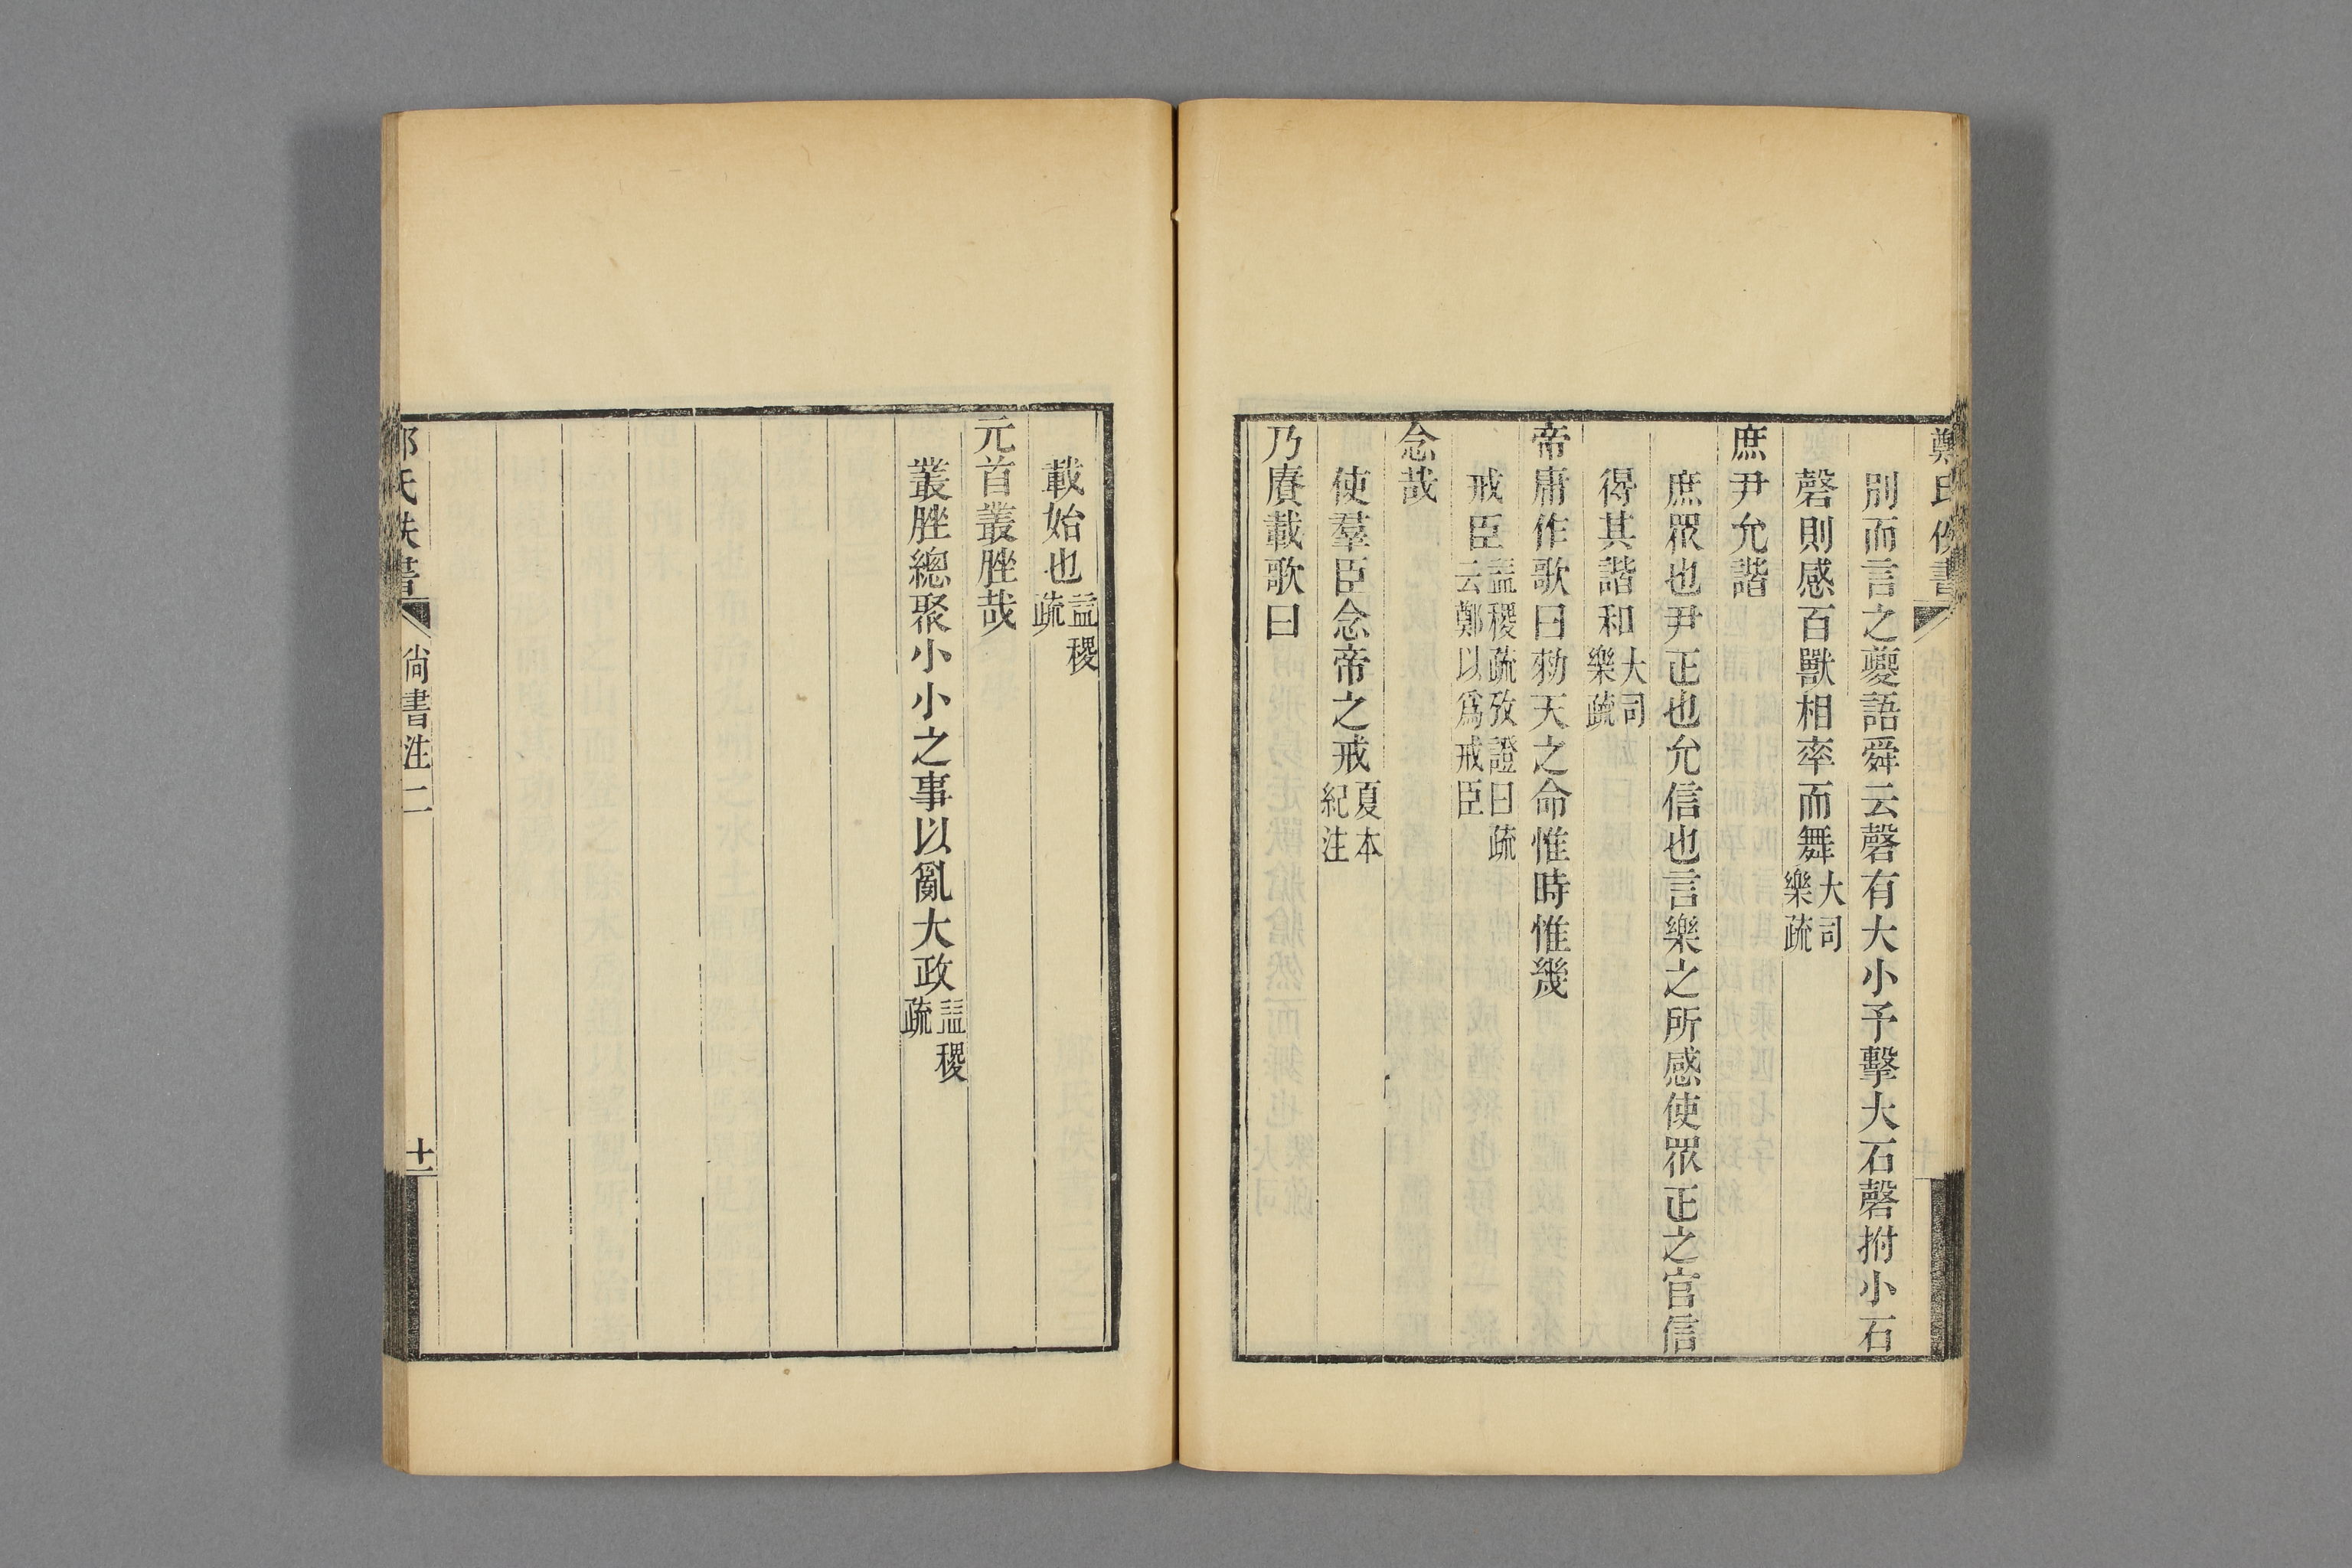 別而言之夔語舜云磬有大小予擊大石磬拊小石
磬則感百獸相率而舞大司樂疏
庶尹允諧
庶眾也尹正也允信也言樂之所感使眾正之官信
得其諧和大司樂疏
帝庸作歌曰勑天之命惟時惟幾
戒臣益稷疏攷證曰疏云鄭以爲戒臣
念哉
使羣臣念帝之戒夏本紀注
乃賡載歌曰
載始也益稷疏
元首叢脞哉
叢脞總聚小小之事以亂大政益稷疏
氏佚書
尙書注二
十一